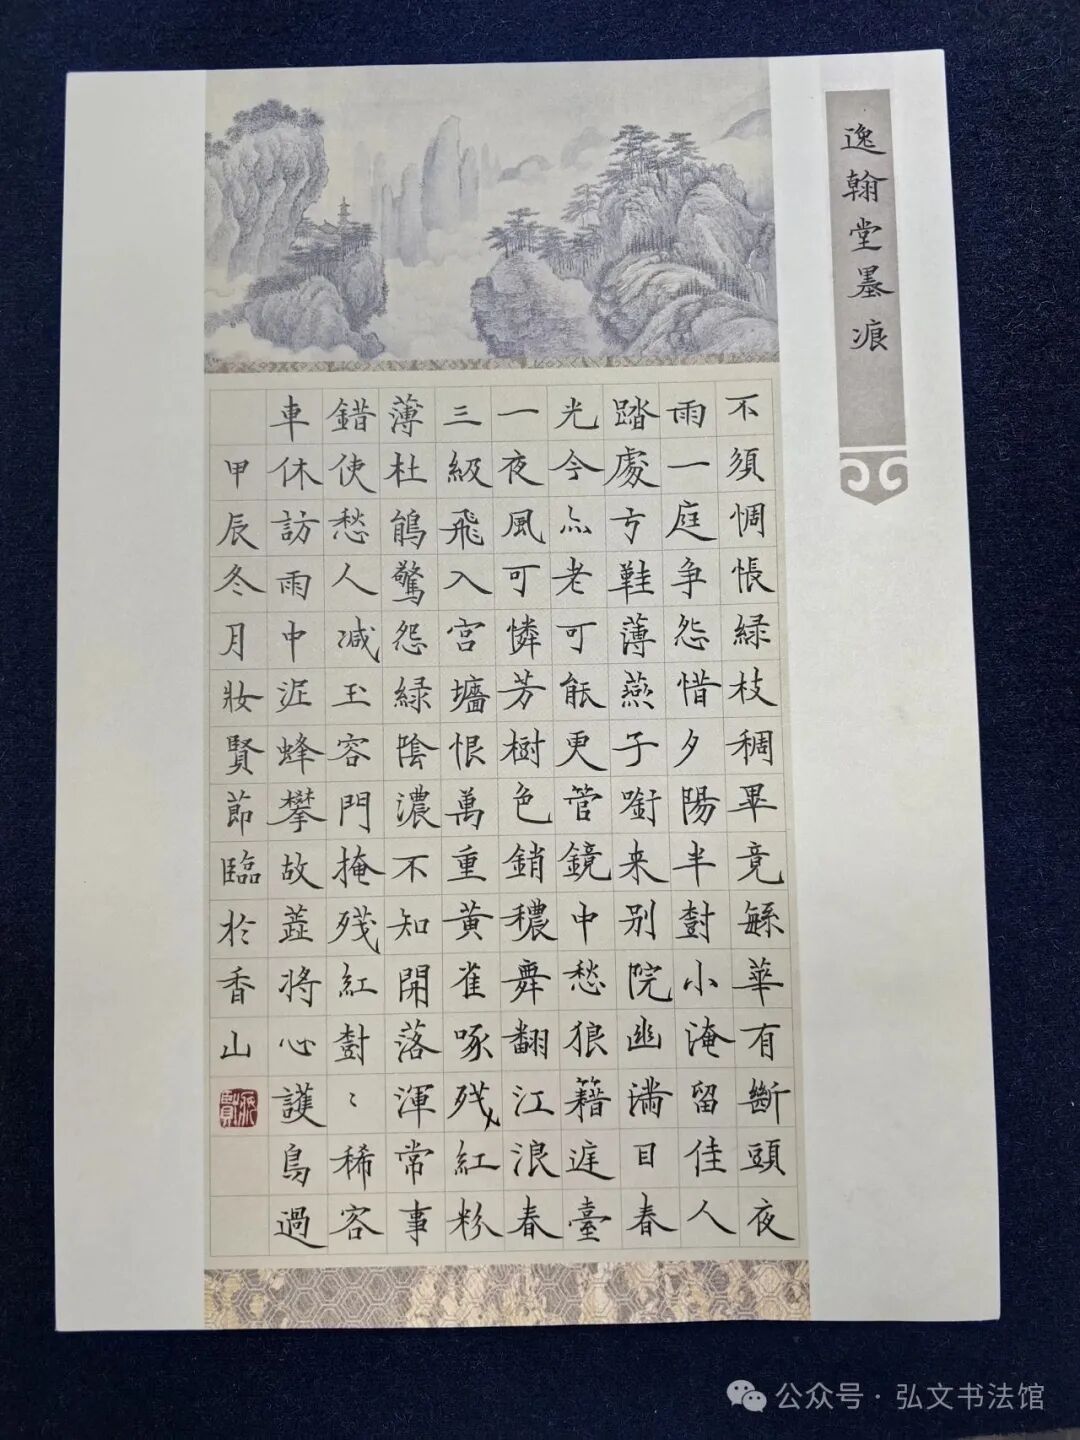 逸翰堂墨痕
不須惆悵緑枝稠畢竟繇華有斷頭夜
雨一庭争怨惜夕陽半對小淹留佳人
踏處弓鞋薄燕子啣来别院幽满目春
光今亦老可能更管鏡中愁狼籍庭臺
一夜風可憐芳樹色銷穠舞翻江浪春
三級飛入宮墻恨萬重黄雀啄残紅粉
薄杜鵑驚怨緑陰濃不知開落渾常事
錯使愁人减玉容門掩残紅對〻稀客
車休訪雨中泥蜂攀故蕋将心護鳥過
甲辰冬月妝賢節臨於香山
公众号·弘文书法馆